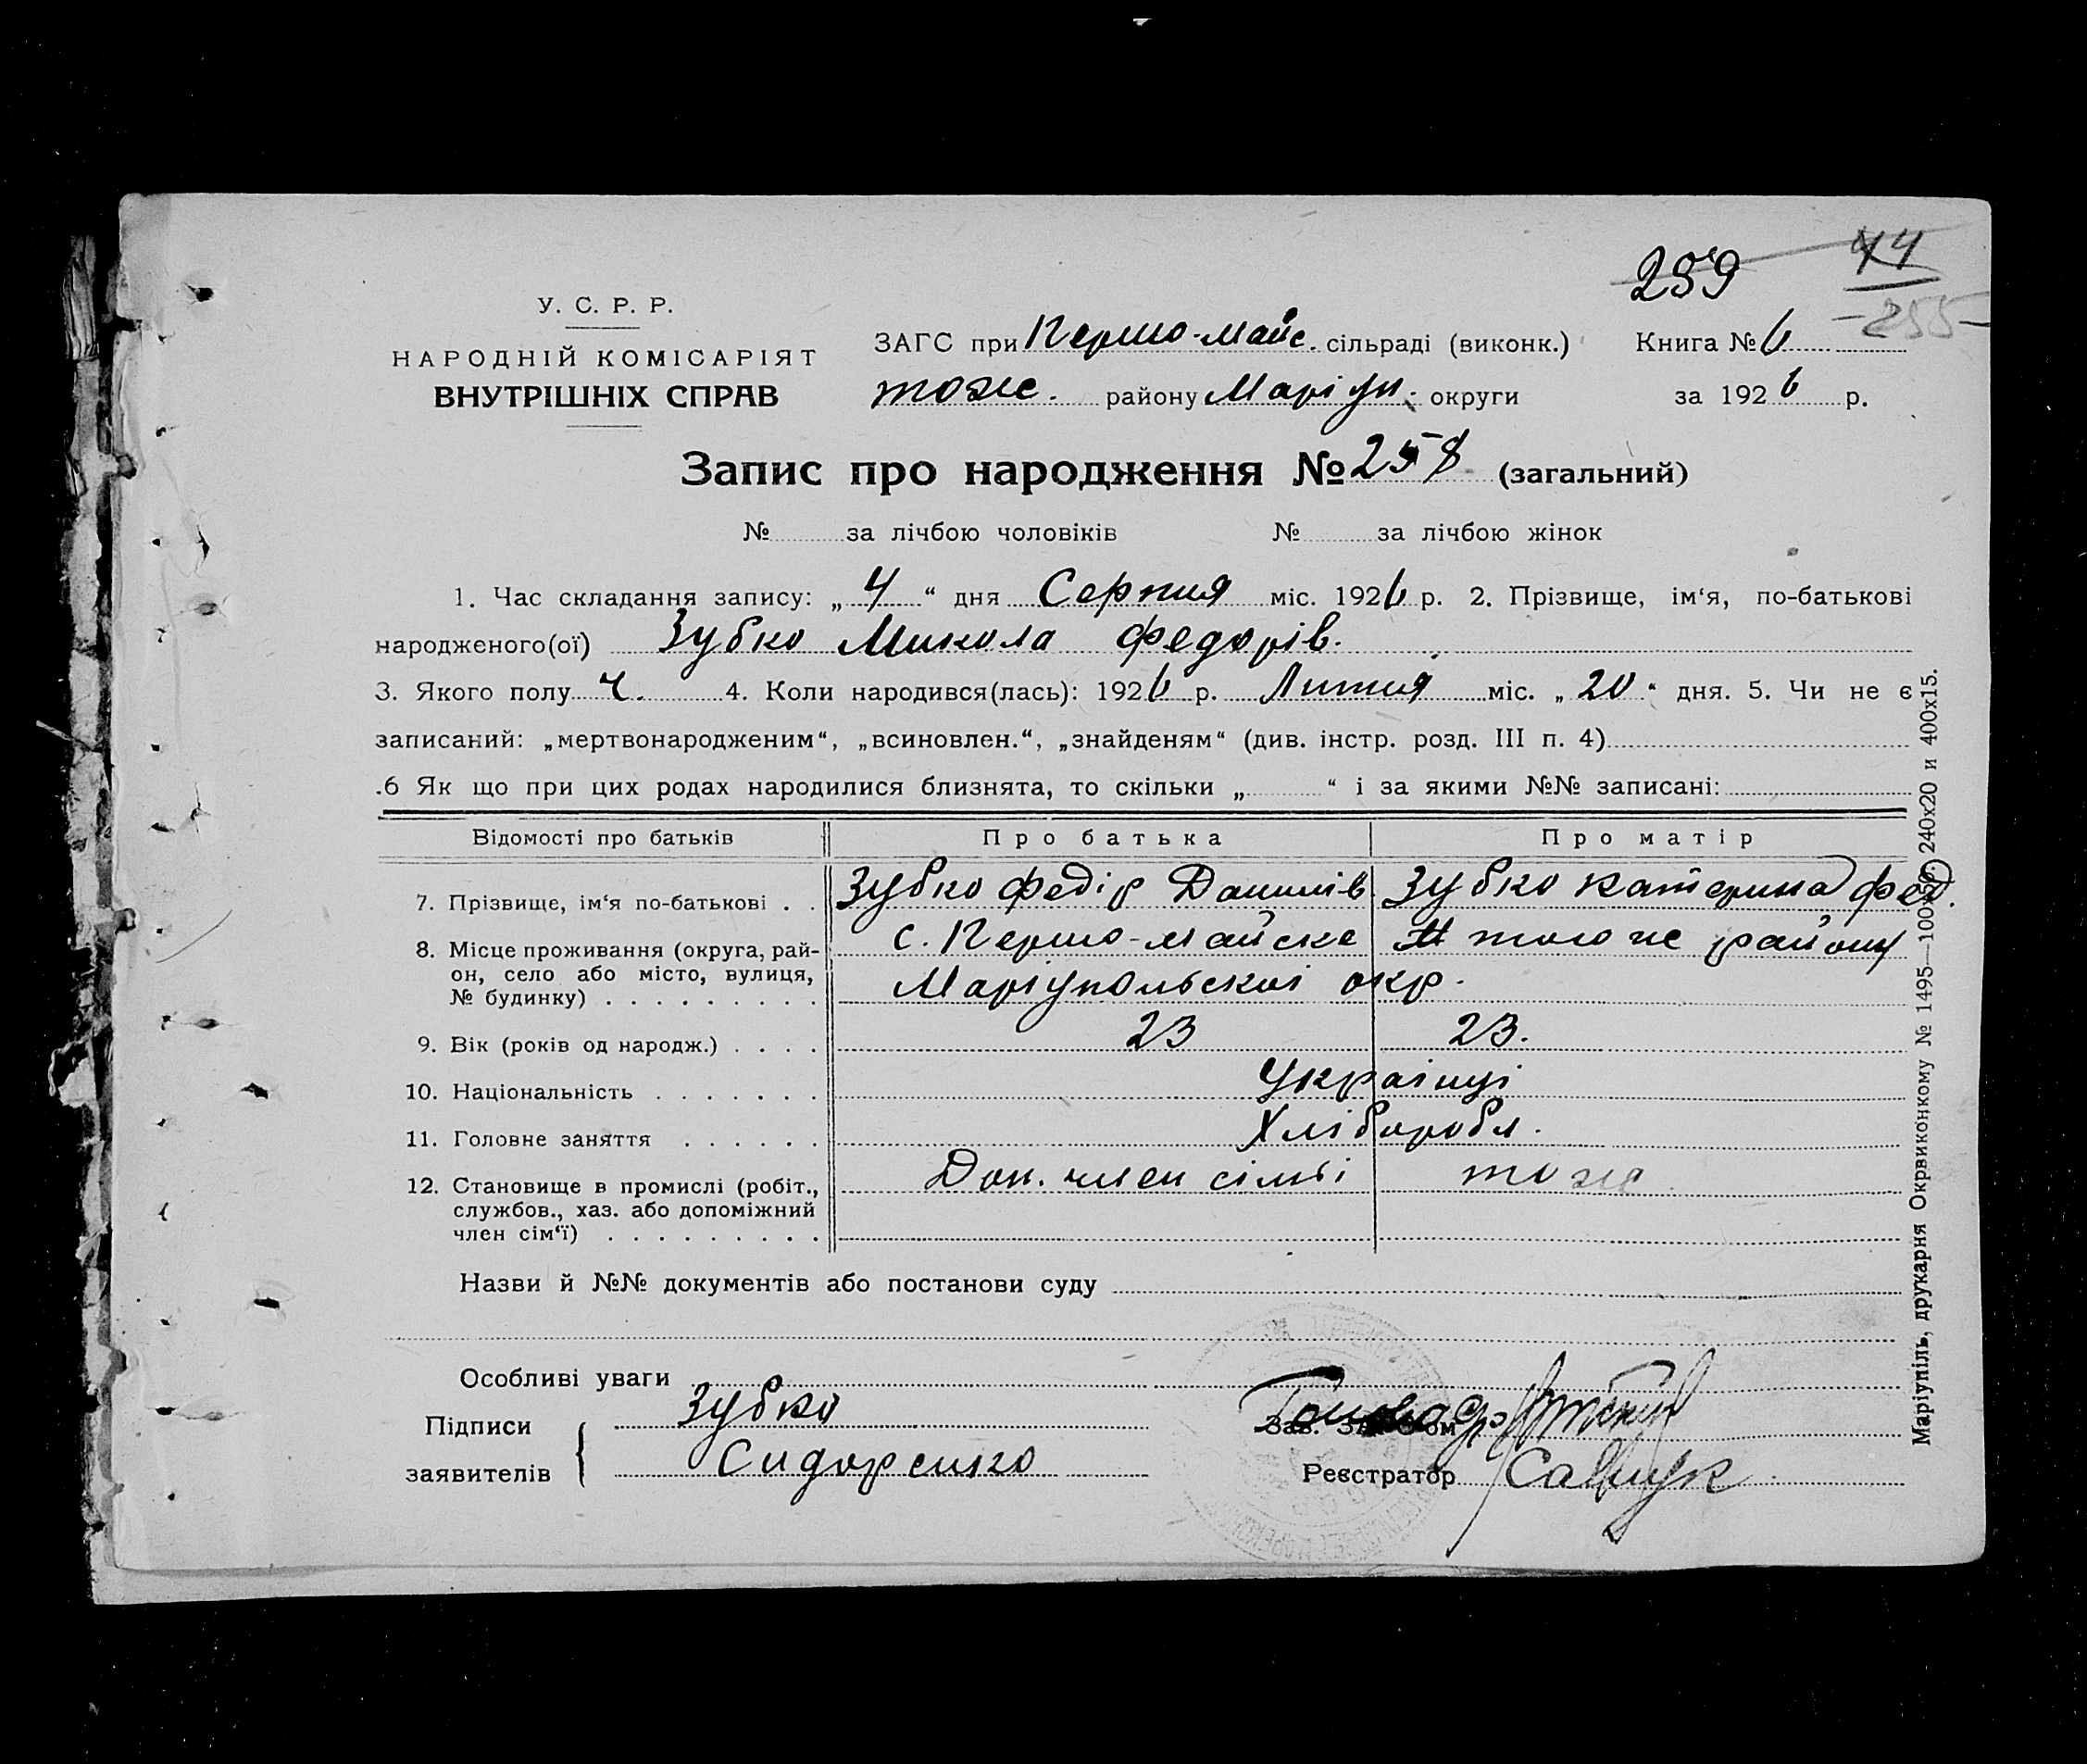 259
44
-255-
У. С. Р. Р.
НАРОДНІЙ КОМІСАРІЯТ
ВНУТРІШНІХ СПРАВ
ЗАГС при Першо-майс. сільраді (виконк.) Книга № 6
тоже. району Маріуп. округи за 1926 р.
Запис про народження № 258 (загальний)
№ за лічбою чоловіків № за лічбою жінок
1. Час складання запису: „4“ дня Серпня міс. 1926 р. 2. Прізвище, ім‘я, по-батькові
народженого(ої) Зубко Микола Федорів.
3. Якого полу ч. 4. Коли народився(лась): 1926 р. Липня міс. „20“ дня. 5. Чи не є
записаний: „мертвонародженим“, „всиновлен.“, „знайденям“ (див. інстр. розд. III п. 4)
.6 Як що при цих родах народилися близнята, то скільки „ “ і за якими №№ записані:
Відомості про батьків Про батька Про матір
7. Прізвище, ім‘я по-батькові . . Зубко Федір Данилів Зубко Катерина Фед.
8. Місце проживання (округа, рай- с. Першо-майске того же району
он, село або місто, вулиця,
№ будинку) . . . . . . . . . Маріупольскоі окр.
9. Вік (років од народж.) . . . . 23 23.
10. Національність . . . . . . . Украінці
11. Головне заняття . . . . . . Хліборобл.
12. Становище в промислі (робіт., Доп. член сімьі тоже
службов., хаз. або допоміжний
член сім‘ї) . . . . . . . . .
Назви й №№ документів або постанови суду
Особливі уваги
Підписи Зубко
заявителів Сидоренко
Голова
Зав. ЗАГС‘ом
Реєстратор Савчук
Маріупіль, друкарня Окрвиконкому № 1495—100 240х20 и 400х15.